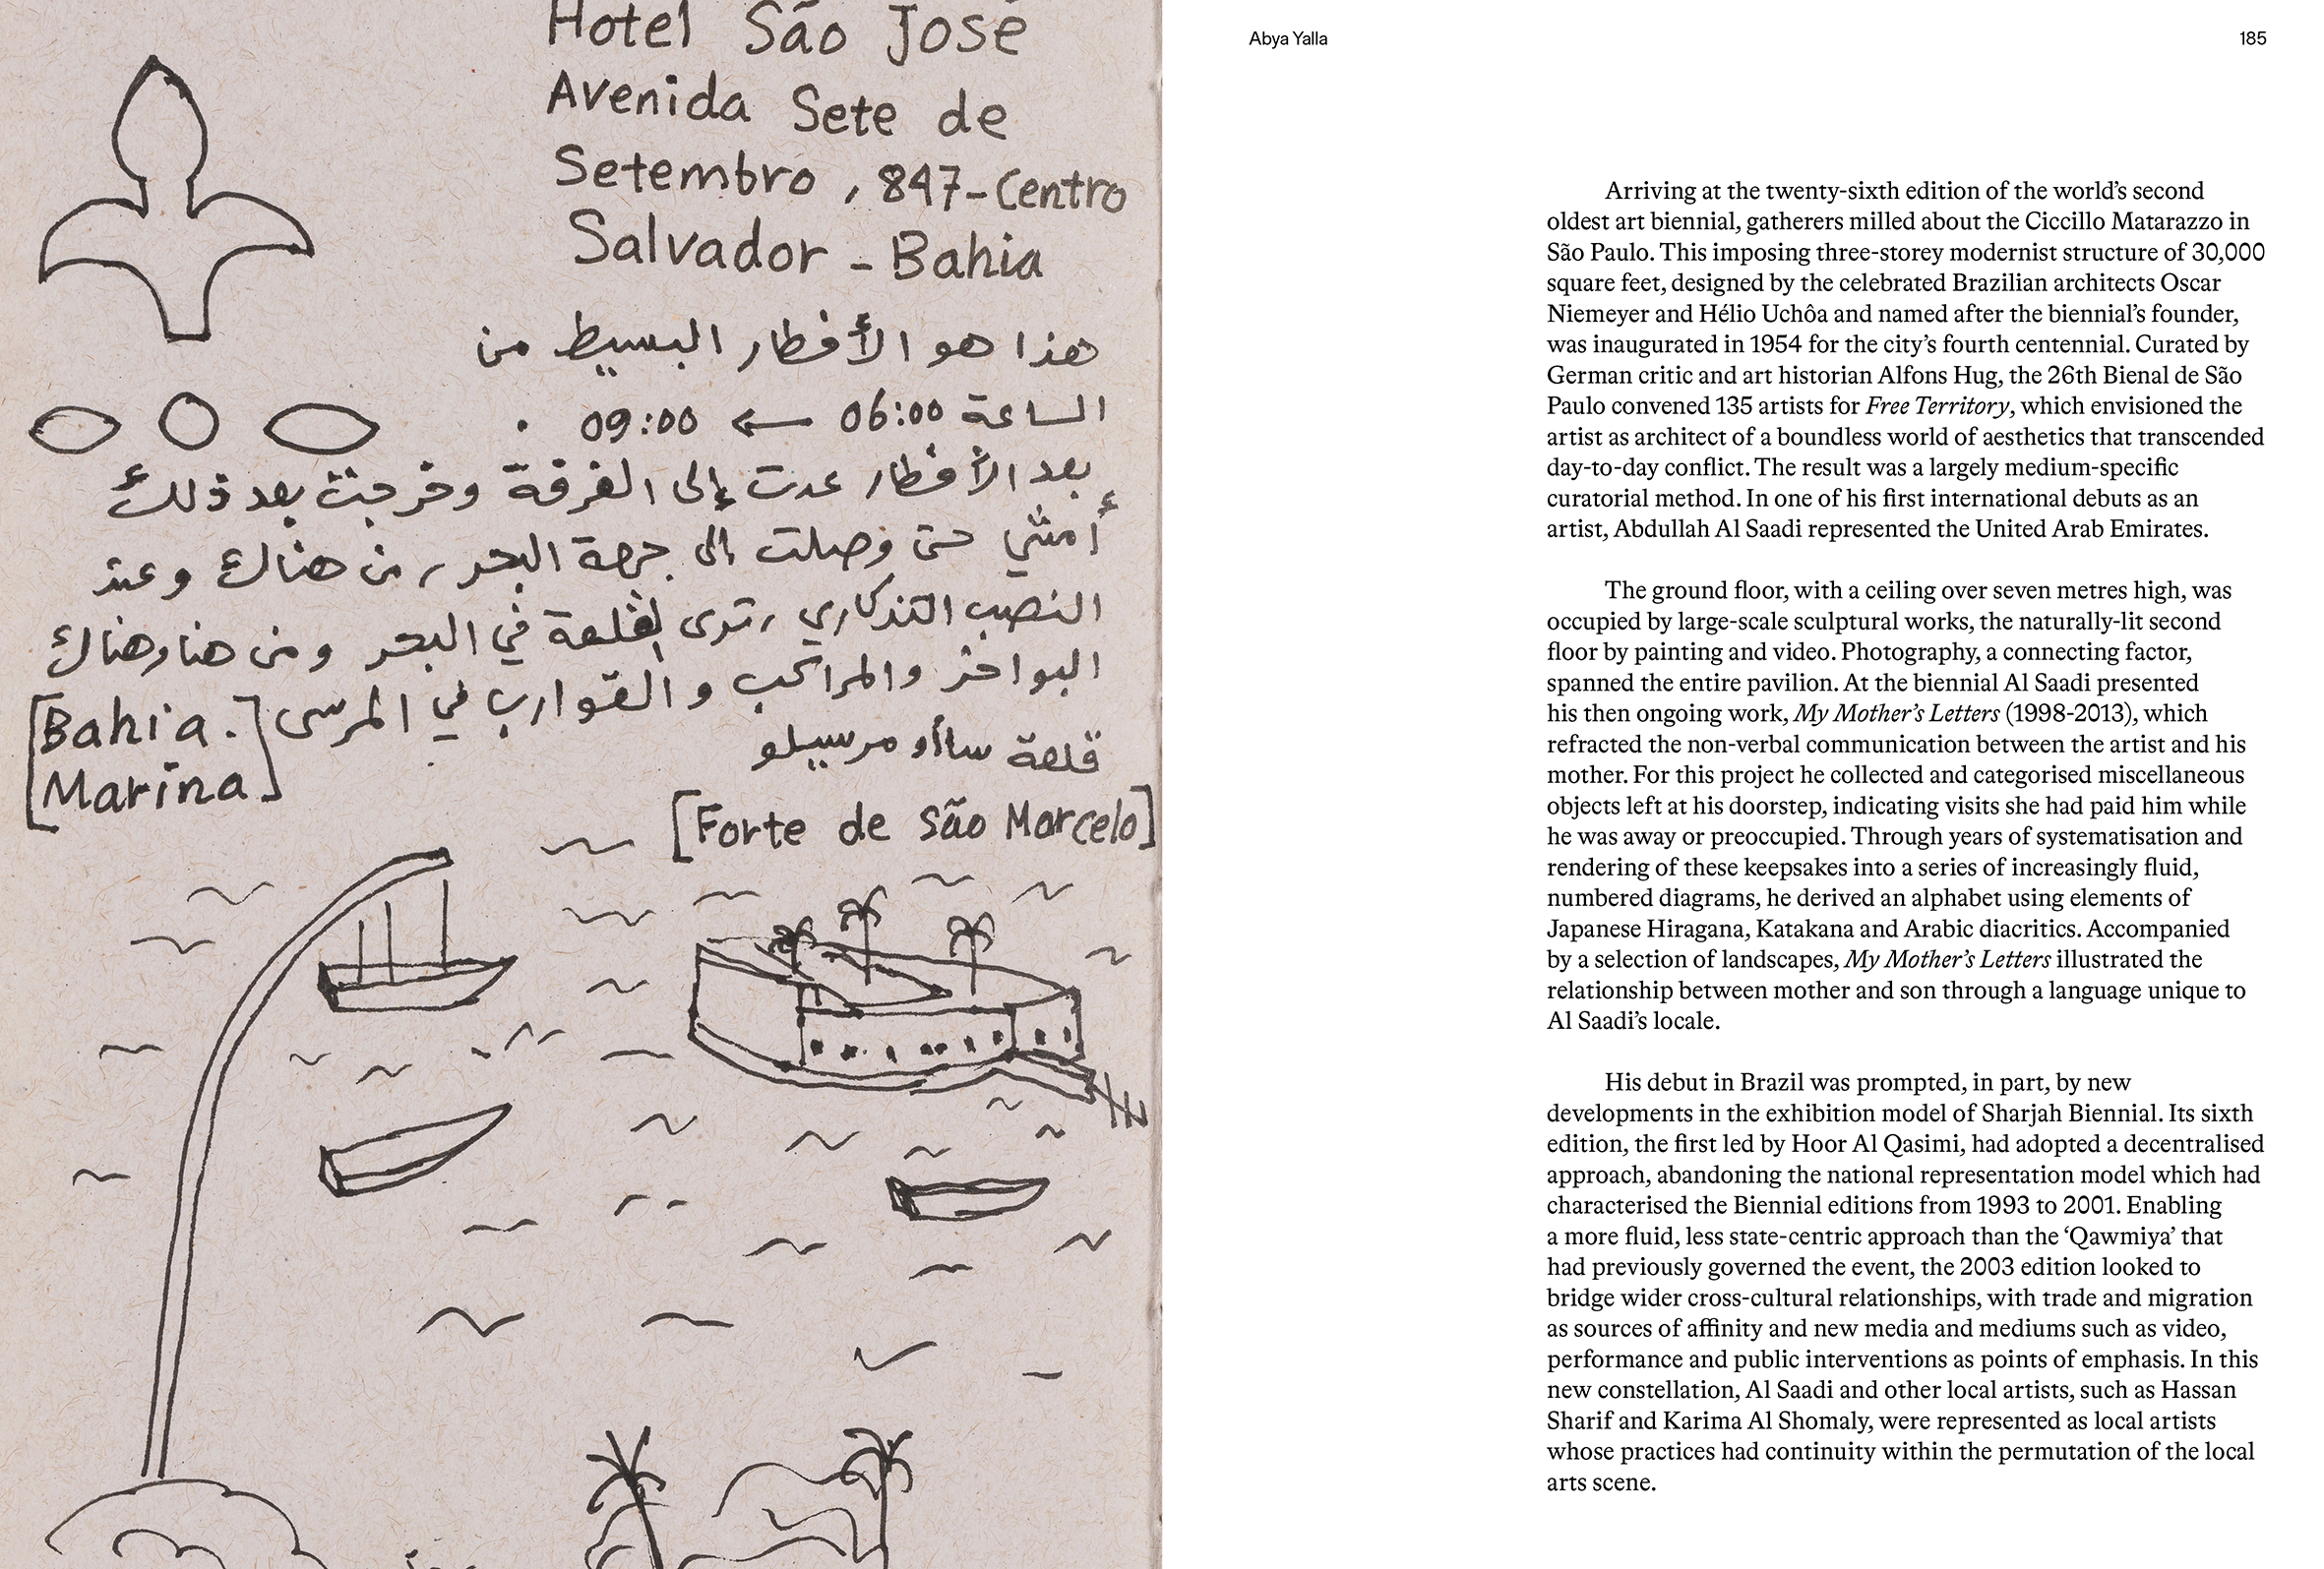 Hotel São José
Avenida Sete de
Setembro, 847-Centro
Salvador - Bahia
هذا هو الأفطار البسيط من
الساعة 06:00 ← 09:00 .
بعد الأفطار عدت إلى الغرفة وخرجت بعد ذلك
أمشي حتى وصلت إلى جهة البحر، من هناك وعند
النصب التذكاري، ترى القلعة في البحر ومن هنا وهناك
البواخر والمراكب والقوارب في المرسى
[Bahia.
Marina]
قلعة ساأو مرسيلو
[Forte de São Marcelo]
Abya Yalla
185
Arriving at the twenty-sixth edition of the world's second
oldest art biennial, gatherers milled about the Ciccillo Matarazzo in
São Paulo. This imposing three-storey modernist structure of 30,000
square feet, designed by the celebrated Brazilian architects Oscar
Niemeyer and Hélio Uchôa and named after the biennial's founder,
was inaugurated in 1954 for the city's fourth centennial. Curated by
German critic and art historian Alfons Hug, the 26th Bienal de São
Paulo convened 135 artists for Free Territory, which envisioned the
artist as architect of a boundless world of aesthetics that transcended
day-to-day conflict. The result was a largely medium-specific
curatorial method. In one of his first international debuts as an
artist, Abdullah Al Saadi represented the United Arab Emirates.
The ground floor, with a ceiling over seven metres high, was
occupied by large-scale sculptural works, the naturally-lit second
floor by painting and video. Photography, a connecting factor,
spanned the entire pavilion. At the biennial Al Saadi presented
his then ongoing work, My Mother's Letters (1998-2013), which
refracted the non-verbal communication between the artist and his
mother. For this project he collected and categorised miscellaneous
objects left at his doorstep, indicating visits she had paid him while
he was away or preoccupied. Through years of systematisation and
rendering of these keepsakes into a series of increasingly fluid,
numbered diagrams, he derived an alphabet using elements of
Japanese Hiragana, Katakana and Arabic diacritics. Accompanied
by a selection of landscapes, My Mother's Letters illustrated the
relationship between mother and son through a language unique to
Al Saadi's locale.
His debut in Brazil was prompted, in part, by new
developments in the exhibition model of Sharjah Biennial. Its sixth
edition, the first led by Hoor Al Qasimi, had adopted a decentralised
approach, abandoning the national representation model which had
characterised the Biennial editions from 1993 to 2001. Enabling
a more fluid, less state-centric approach than the ‘Qawmiya’ that
had previously governed the event, the 2003 edition looked to
bridge wider cross-cultural relationships, with trade and migration
as sources of affinity and new media and mediums such as video,
performance and public interventions as points of emphasis. In this
new constellation, Al Saadi and other local artists, such as Hassan
Sharif and Karima Al Shomaly, were represented as local artists
whose practices had continuity within the permutation of the local
arts scene.